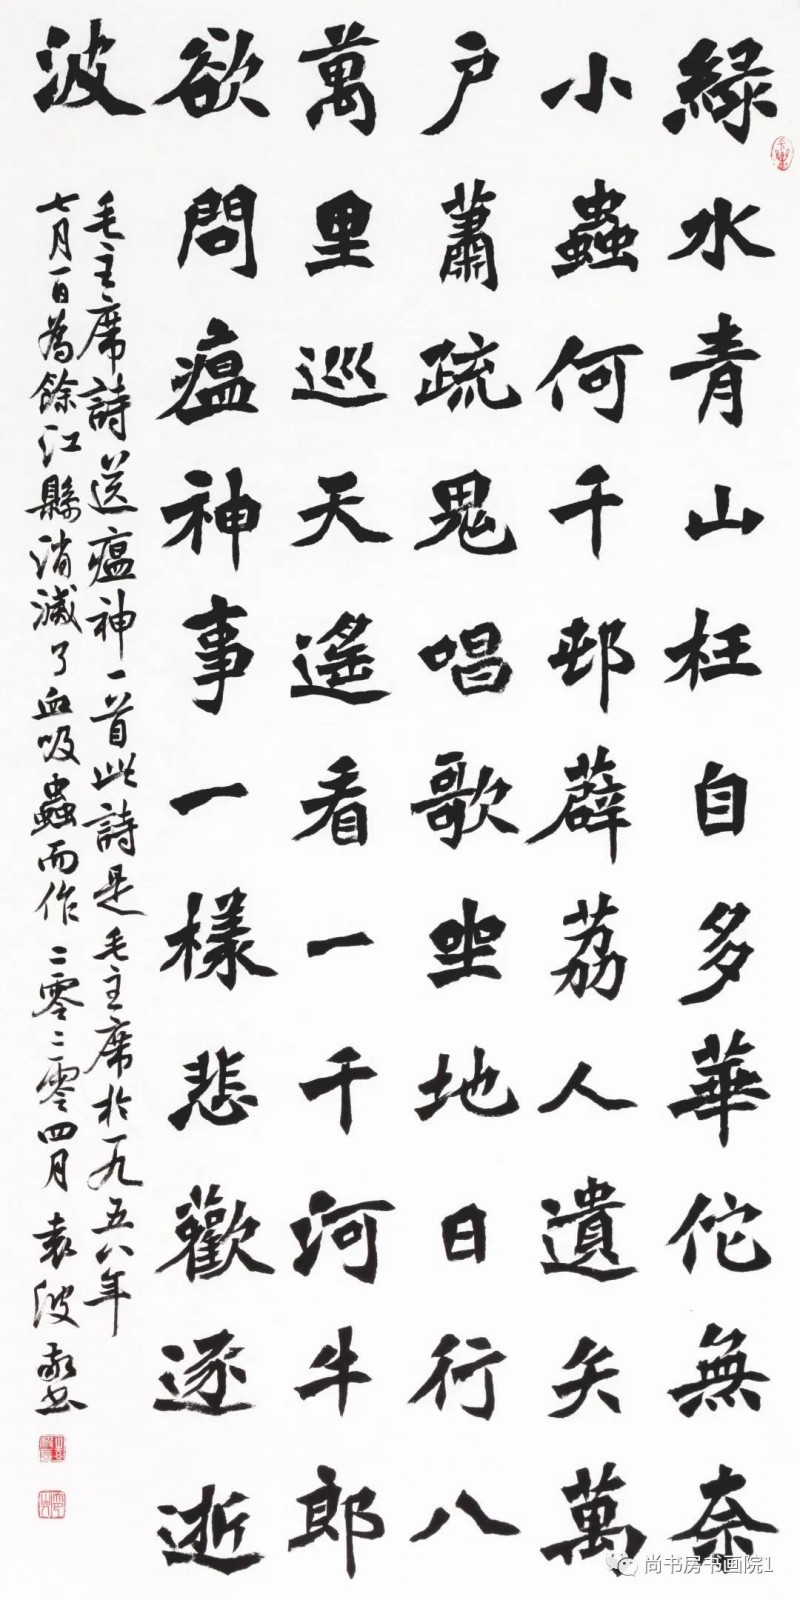 綠水青山枉自多華佗無奈
小蟲何千邨薜荔人遺矢萬
户蕭疏鬼唱歌坐地日行八
萬里巡天遙看一千河牛郎
欲問瘟神事一樣悲歡逐逝
波
毛主席詩送瘟神一首此詩是毛主席於一九五八年
七月一日為餘江縣消滅了血吸蟲而作二零二零四月袁波敬書
尚书房书画院1